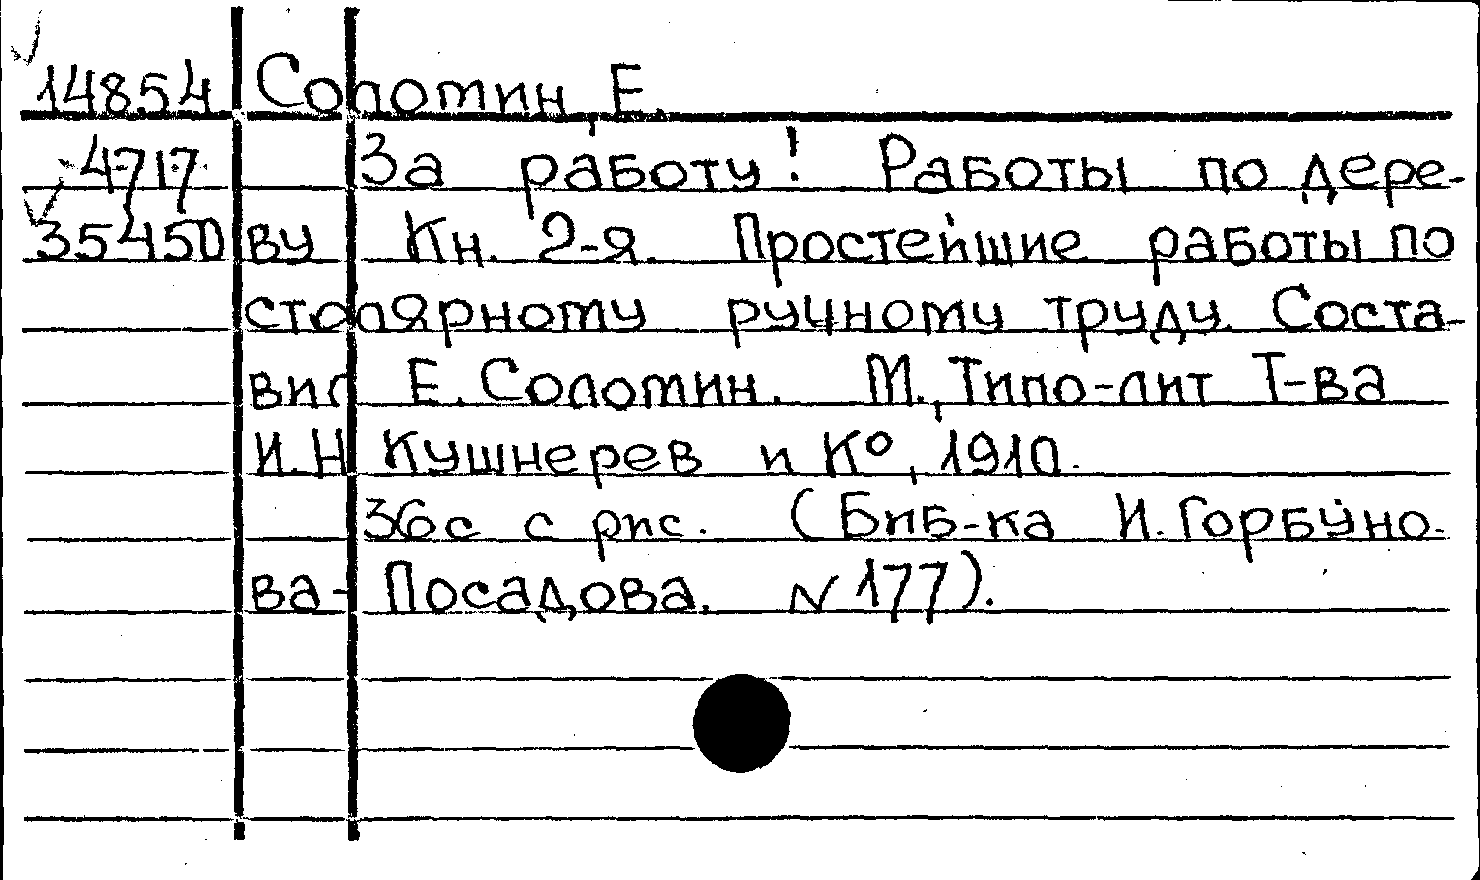 14854 Соломин, Е.
4717 За работу! Работы по дере-
35450 ву Кн. 2-я. Простейшие работы по
столярному ручному труду. Соста-
вил Е. Соломин. М., Типо-лит Т-ва
И.Н Кушнерев и К°, 1910.
36с с рис. (Биб-ка И. Горбуно-
ва- Посадова. N 177).